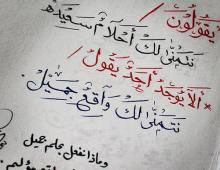 يقولون /
نتمنى لك أحلام سعيده
* ألا يوجد أحد يقول /
نتمنى لك واقع جميل .
وماذا نفعل بحلم جميل